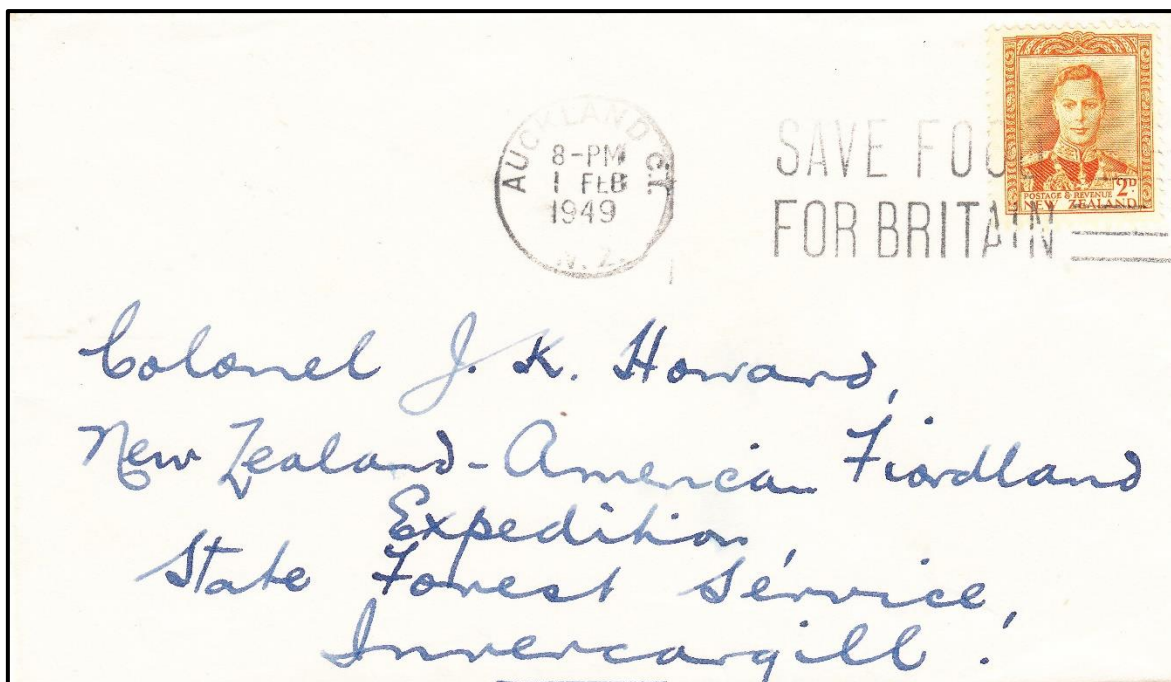 AUCKLAND C.1.
8-PM
1 FEB
1949
N.Z.
SAVE FOOD
FOR BRITAIN
POSTAGE & REVENUE 2D
NEW ZEALAND
Colonel J. K. Howard,
New Zealand-American Fiordland
Expedition,
State Forest Service,
Invercargill.